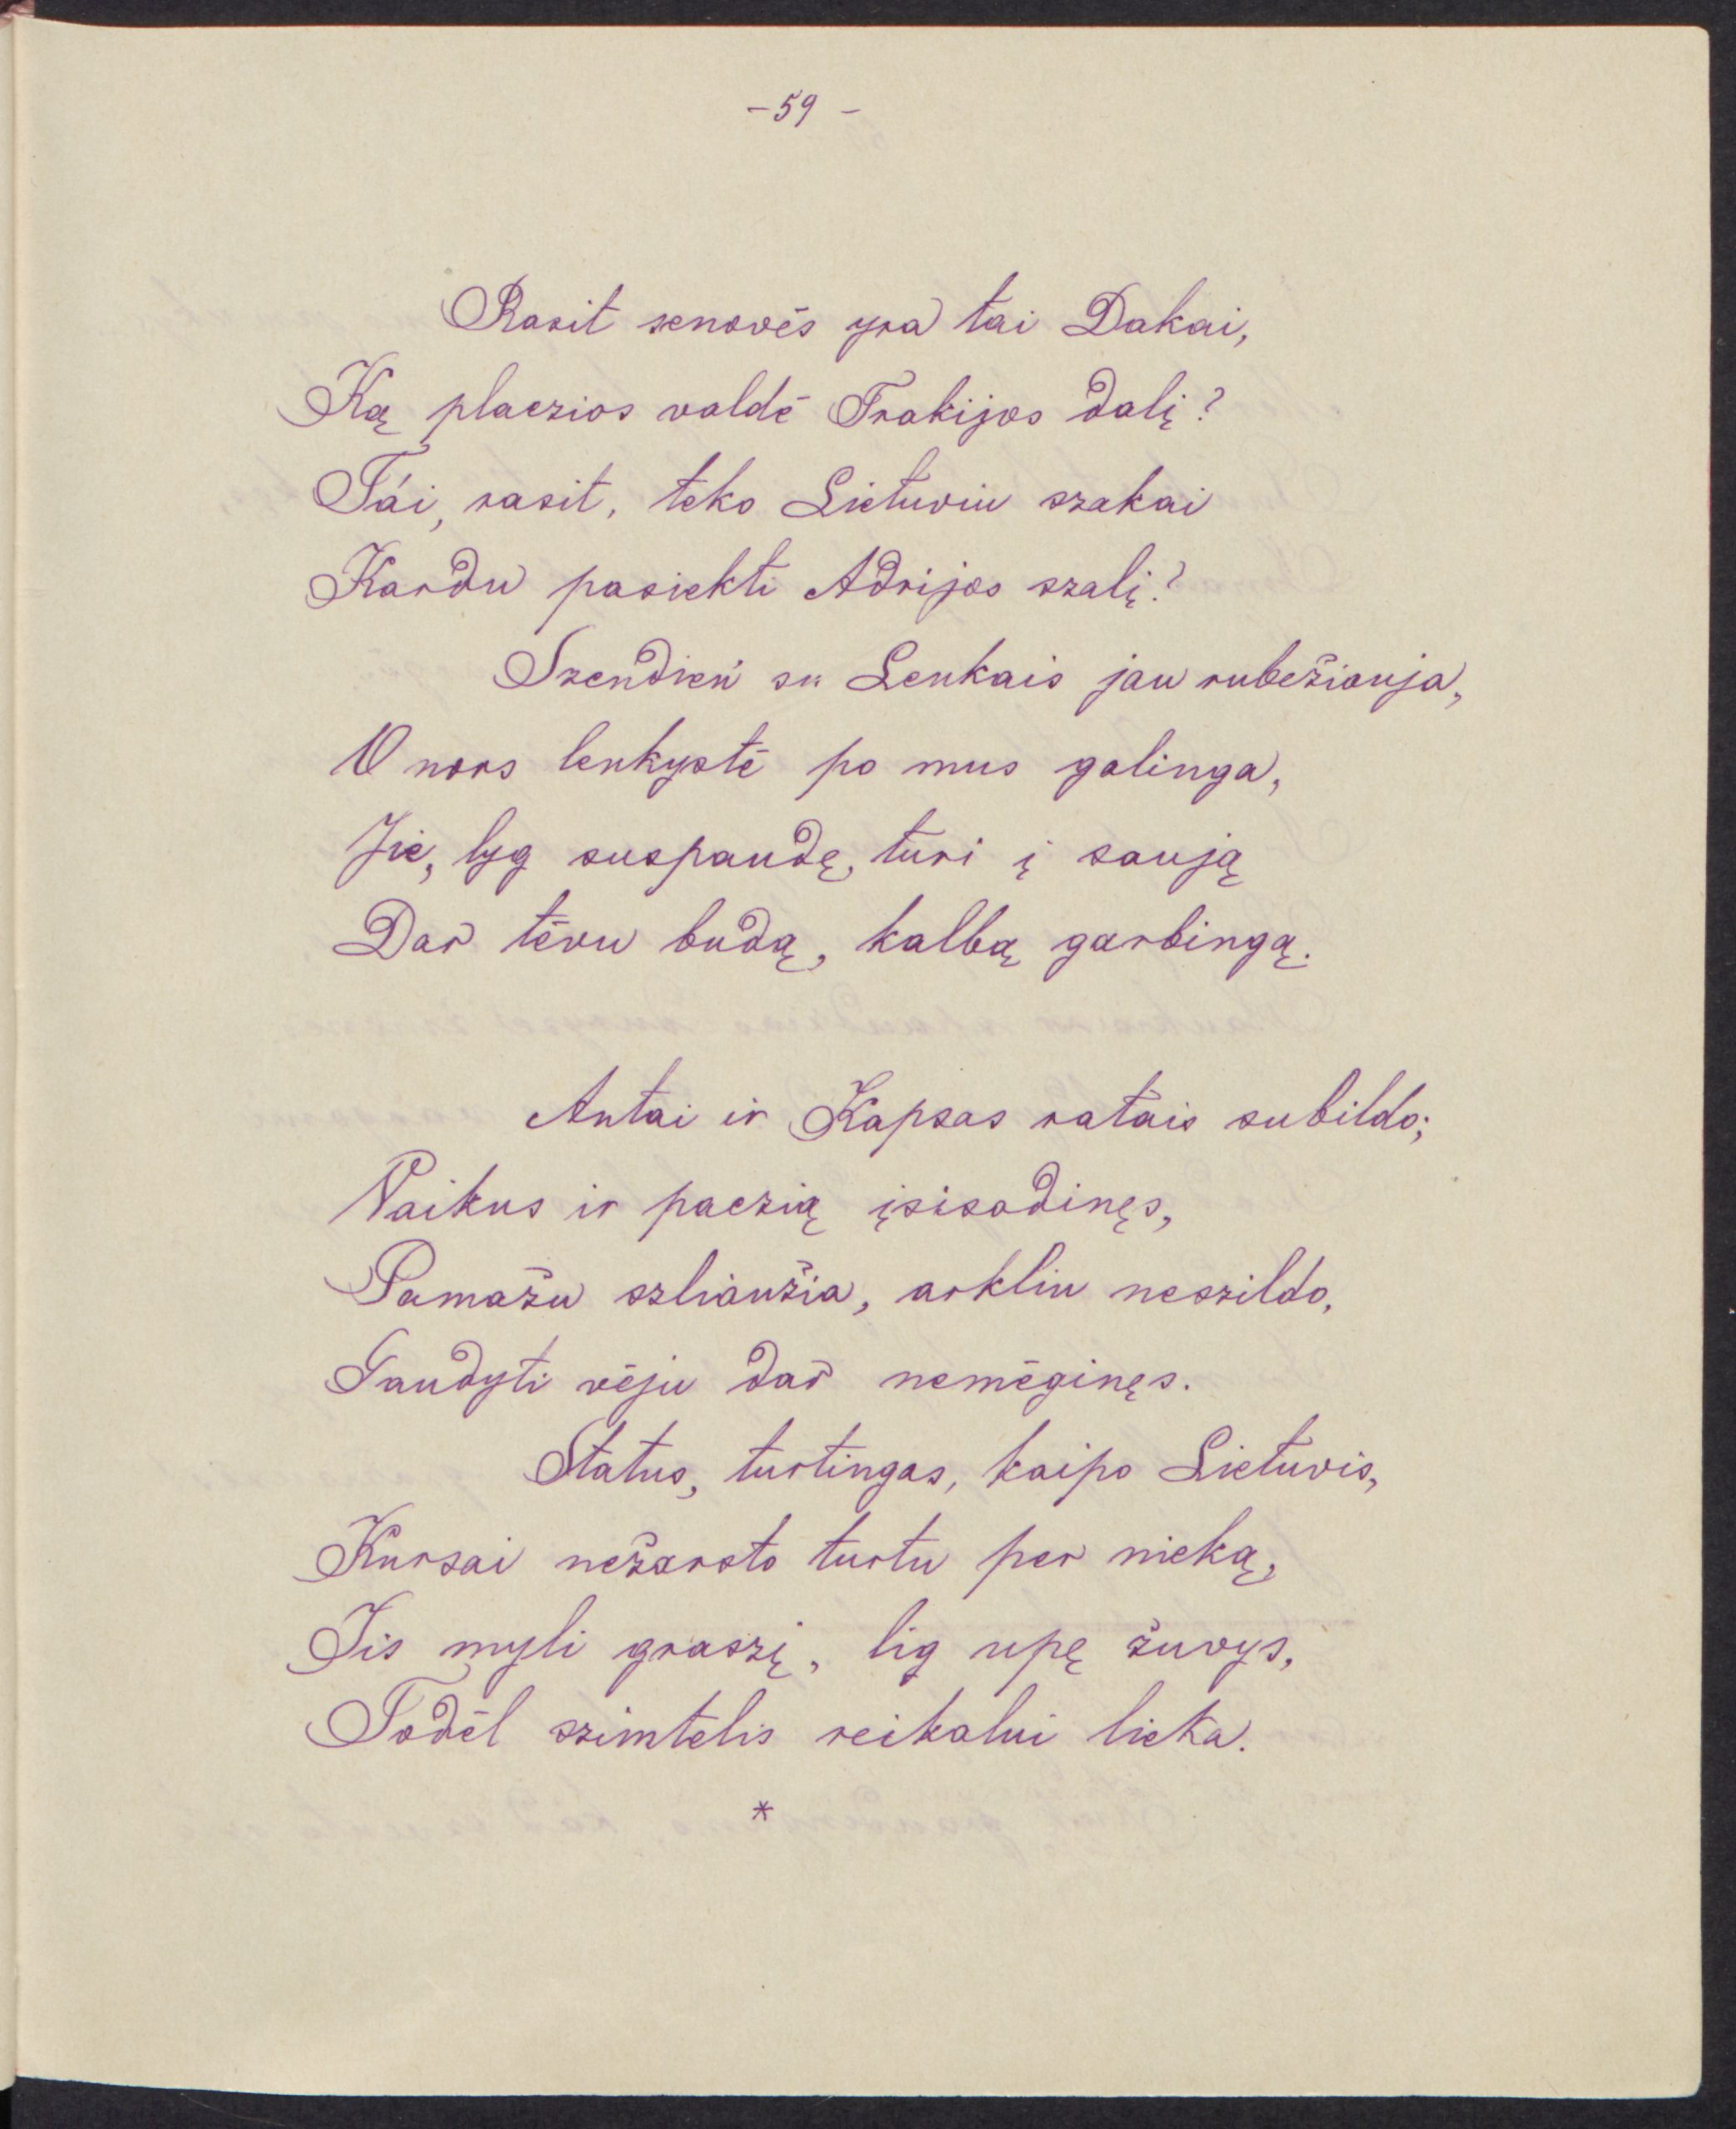 – 59 –
Rasit senovės yra tai Dakai,
Ką placzios valdė Trakijos dalį?
Tái, rasit, teko Lietuviu szakai
Kardu pasiekti Adrijos szalį?
Szendień su Lenkais jau rubežiauja,
O nors lenkystė po mus galinga,
Jie, lyg suspaudę, turi į saują
Dar tėvu budą, kalbą garbingą.
Antai ir Kapsas ratais subildo;
Vaikus ir paczią įsisodinęs,
Pamažu szliaužia, arkliu neszildo,
Gaudyti vėju dar nemėginęs.
Status, turtingas, kaipo Lietuvis,
Kursai nežarsto turtu per nieką,
Jis myli graszį, lig upę žuvys,
Todėl szimtelis reikalui lieka.
*